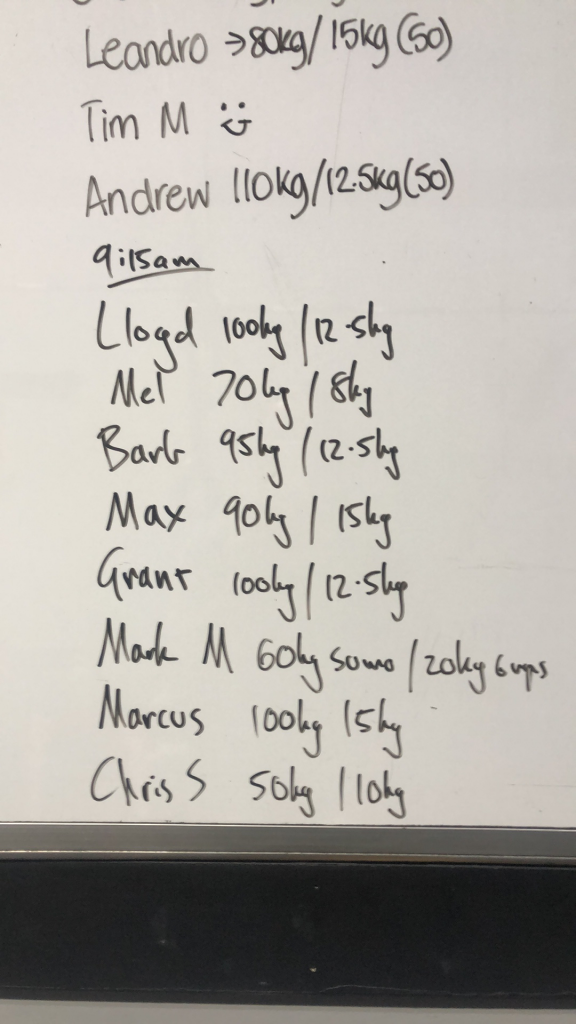 Leandro → 80kg/15kg(50)
Tim M :)
Andrew 110kg/12.5kg(50)
9:15am
Lloyd 100kg/12.5kg
Mel 70kg/8kg
Barb 95kg/12.5kg
Max 90kg/15kg
Grant 100kg/12.5kg
Mark M 60kg sumo/20kg 6 ups
Marcus 100kg 15kg
Chris S 50kg/10kg